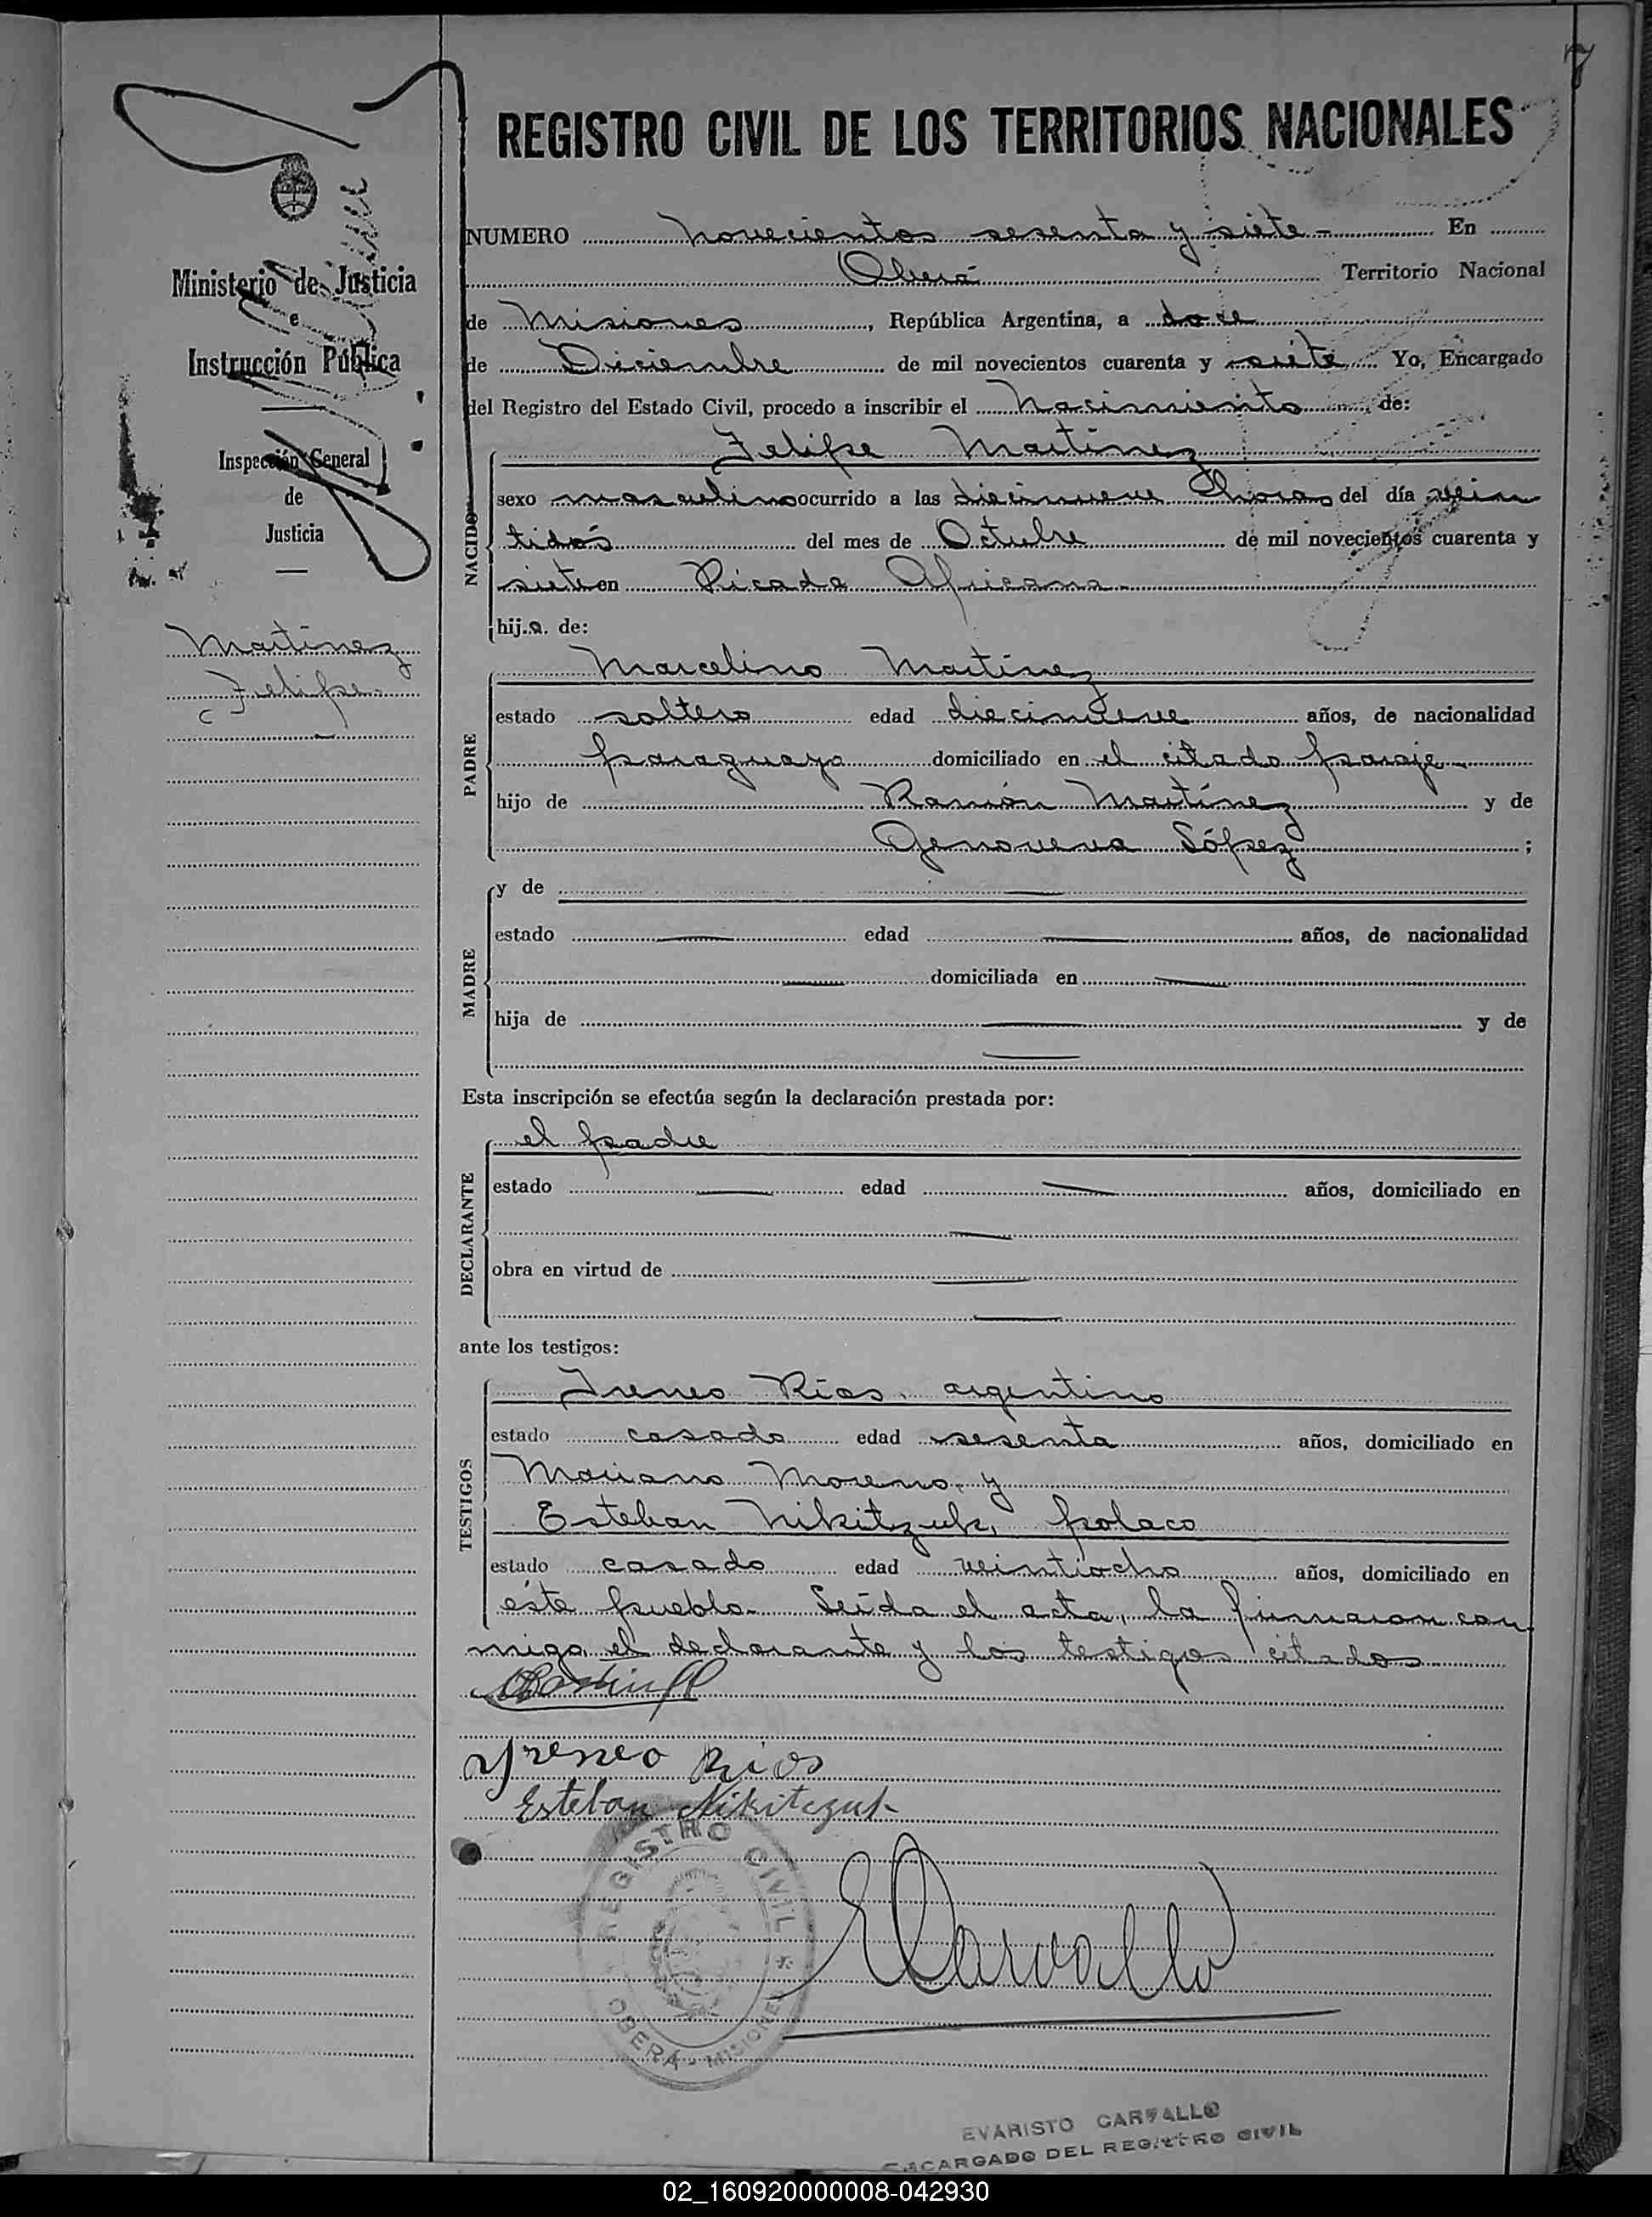 7
REGISTRO CIVIL DE LOS TERRITORIOS NACIONALES
Ministerio de Justicia
e
Instrucción Pública
Inspección General
de
Justicia
Martínez
Felipe
NUMERO novecientos sesenta y siete - En
Oberá Territorio Nacional
de Misiones, República Argentina, a doce
de Diciembre de mil novecientos cuarenta y siete. Yo, Encargado
del Registro del Estado Civil, procedo a inscribir el Nacimiento de:
NACIDO
Felipe Martínez
sexo masculino ocurrido a las diecinueve horas del día vein
tidós del mes de Octubre de mil novecientos cuarenta y
siete en Picada Africana
hij.o. de:
PADRE
Marcelino Martínez
estado soltero edad diecinueve años, de nacionalidad
paraguaya domiciliado en el citado paraje
hijo de Ramón Martínez y de
Genoveva López ;
MADRE
y de —
estado — edad — años, de nacionalidad
— domiciliada en —
hija de — y de
—
Esta inscripción se efectúa según la declaración prestada por:
DECLARANTE
el padre
estado — edad — años, domiciliado en
—
obra en virtud de —
—
ante los testigos:
TESTIGOS
Ireneo Ríos, argentino
estado casado edad sesenta años, domiciliado en
Mariano Moreno y
Esteban Nikitzuk, polaco
estado casado edad veintiocho años, domiciliado en
éste pueblo. Leída el acta, la firmaron con
migo el declarante y los testigos citados
Yreneo Rios
Esteban Nikitczuk
REGISTRO CIVIL
OBERÁ - MISIONES
ECarvallo
EVARISTO CARVALLO
ENCARGADO DEL REGISTRO CIVIL
02_160920000008-042930